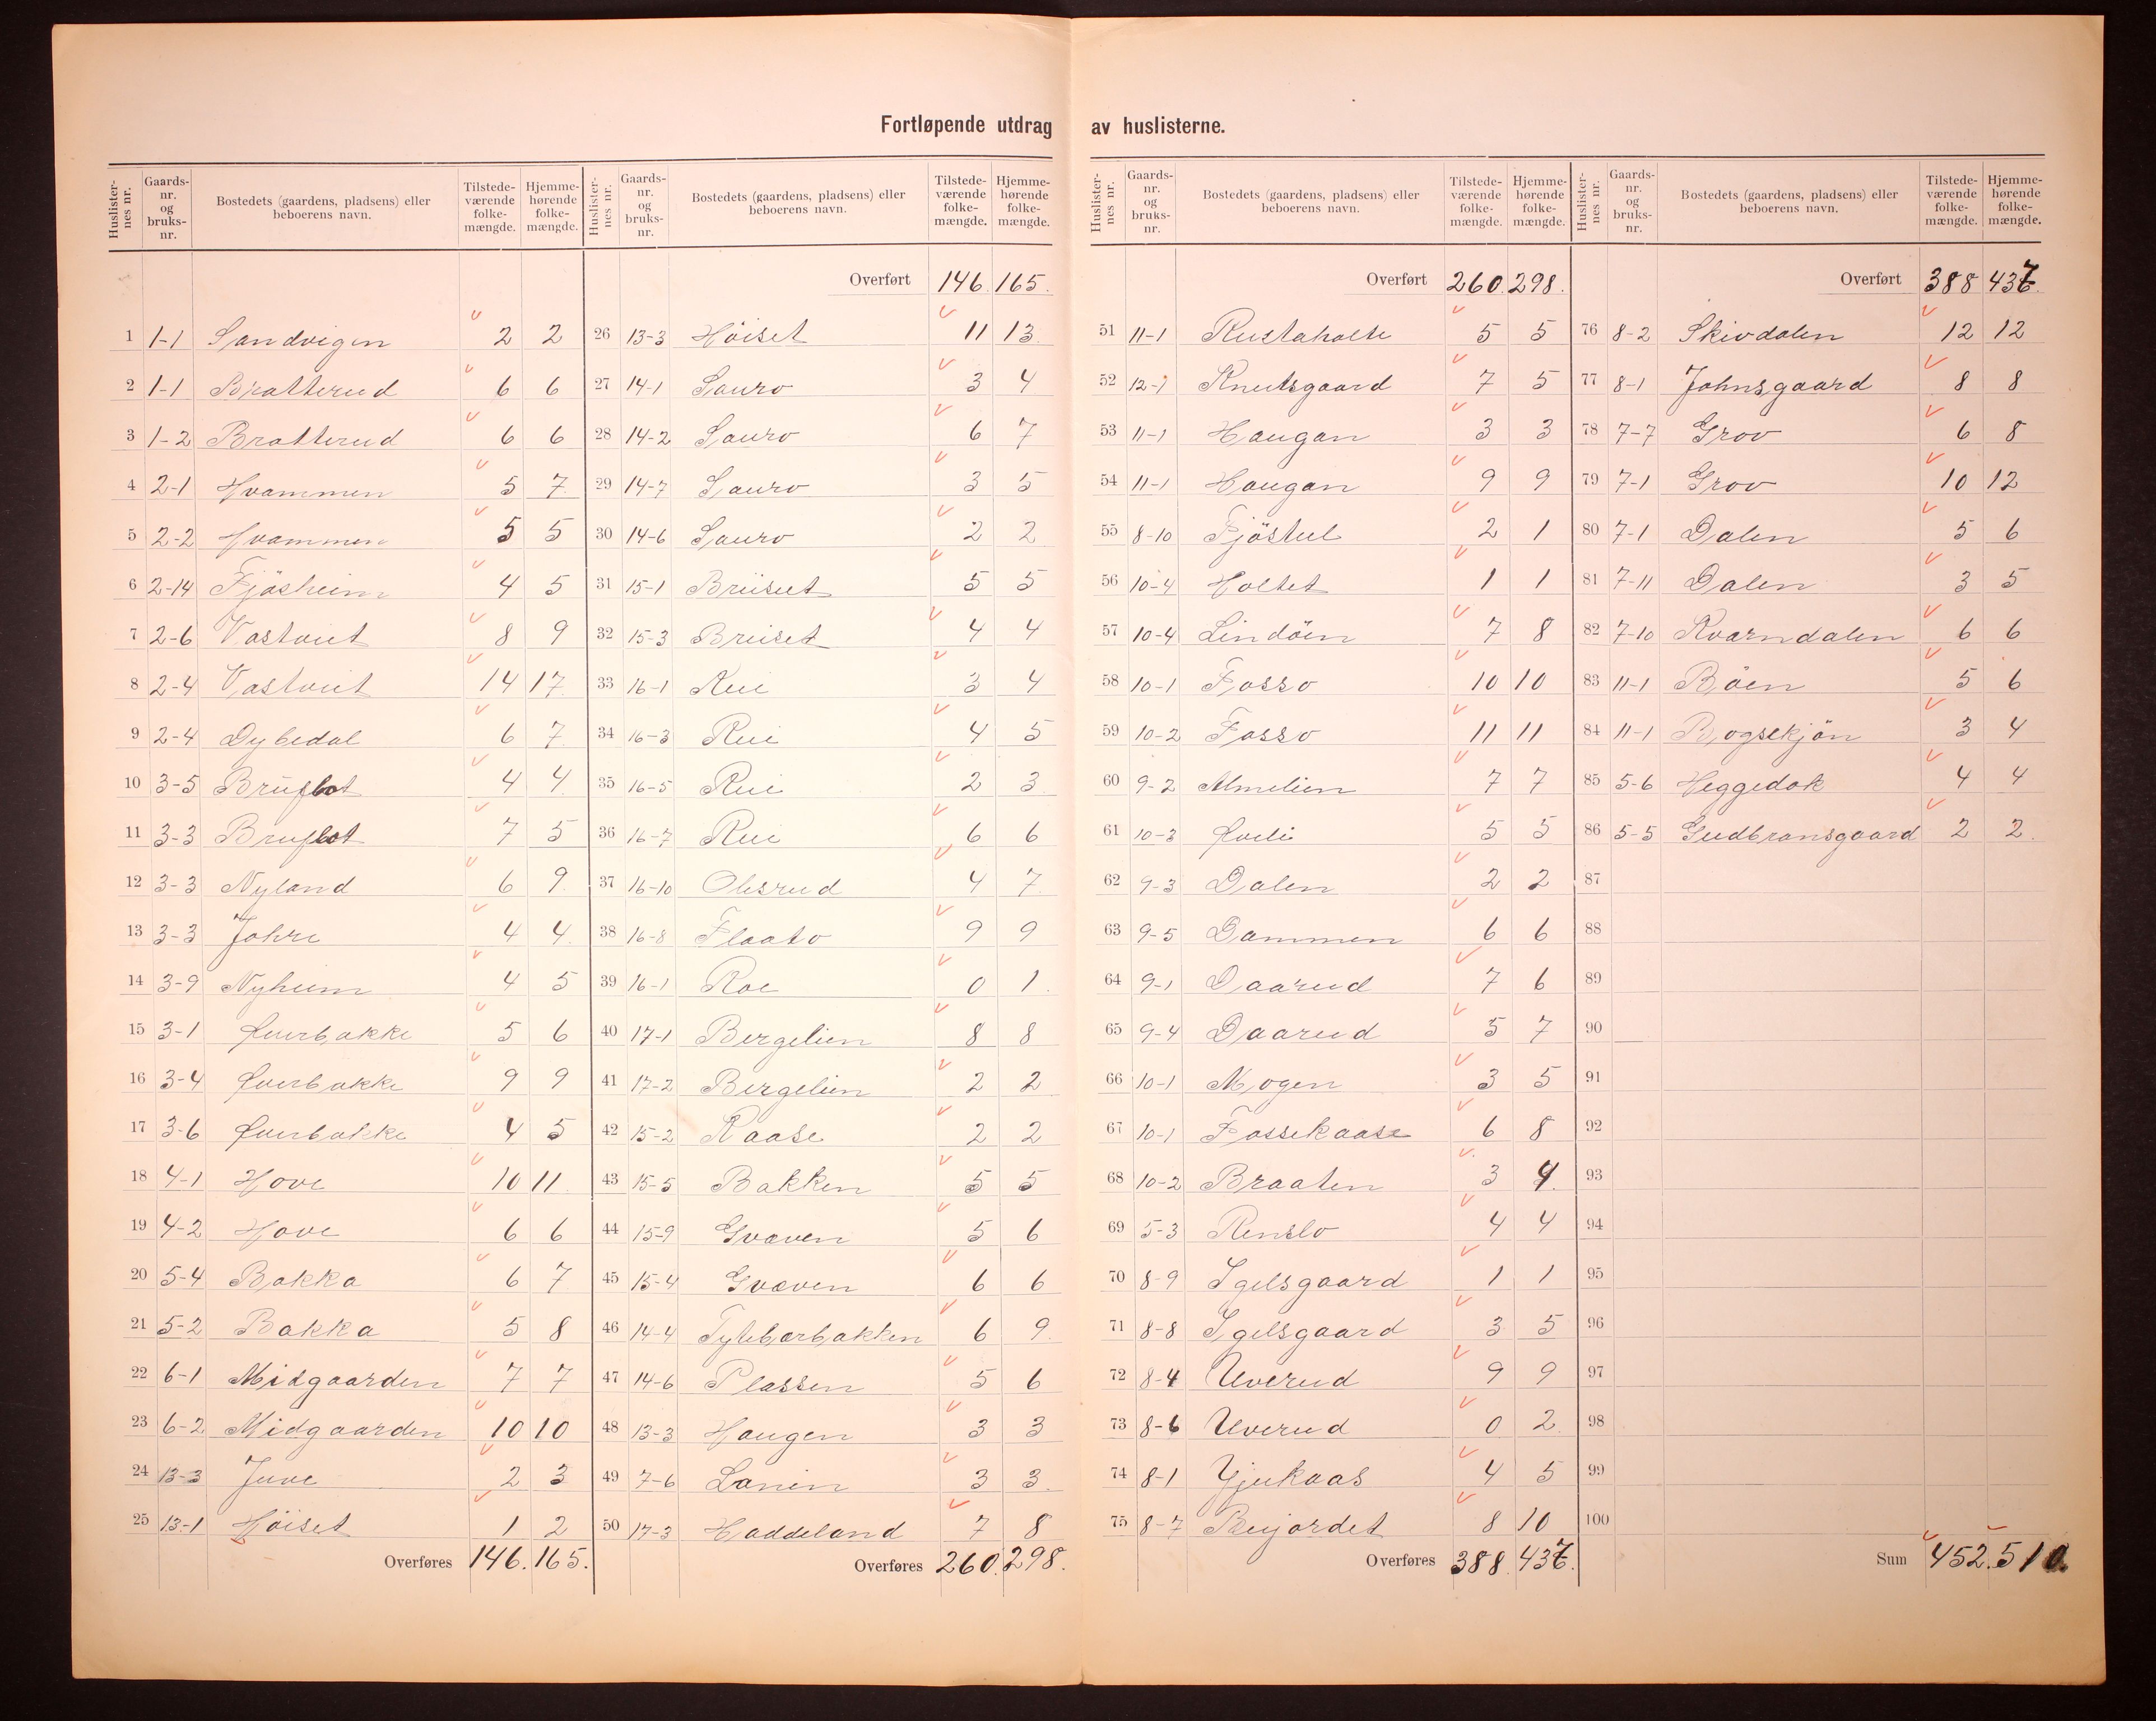 Fortløpende utdrag av huslisterne.
Huslisternes nr. Gaardsnr. og bruksnr. Bostedets (gaardens, pladsens) eller beboerens navn. Tilstedeværende folkemængde. Hjemmehørende folkemængde.
1 1-1 Sandvigen 2 2
2 1-1 Bratterud 6 6
3 1-2 Bratterud 6 6
4 2-1 Hvammen 5 7
5 2-2 Hvammen 5 5
6 2-14 Fjösheim 4 5
7 2-6 Vastveit 8 9
8 2-4 Vastveit 14 17
9 2-4 Dybedal 6 7
10 3-5 Bruflot 4 4
11 3-3 Bruflot 7 5
12 3-3 Nyland 6 9
13 3-3 Johre 4 4
14 3-9 Nyheim 4 5
15 3-1 Øverbakke 5 6
16 3-4 Øverbakke 9 9
17 3-6 Øverbakke 4 5
18 4-1 Hove 10 11
19 4-2 Hove 6 6
20 5-4 Bakka 6 7
21 5-2 Bakka 5 8
22 6-1 Midgaarden 7 7
23 6-2 Midgaarden 10 10
24 13-3 Juve 2 3
25 13-1 Höiset 1 2
Overføres 146. 165.
Huslisternes nr. Gaardsnr. og bruksnr. Bostedets (gaardens, pladsens) eller beboerens navn. Tilstedeværende folkemængde. Hjemmehørende folkemængde.
Overført 146. 165.
26 13-3 Höiset 11 13
27 14-1 Sauro 3 4
28 14-2 Sauro 6 7
29 14-7 Sauro 3 5
30 14-6 Sauro 2 2
31 15-1 Briiset 5 5
32 15-3 Briiset 4 4
33 16-1 Rui 3 4
34 16-3 Rui 4 5
35 16-5 Rui 2 3
36 16-7 Rui 6 6
37 16-10 Olsrud 4 7
38 16-8 Flaato 9 9
39 16-1 Roe 0 1
40 17-1 Bergelien 8 8
41 17-2 Bergelien 2 2
42 15-2 Raase 2 2
43 15-5 Bakken 5 5
44 15-9 Gvaven 5 6
45 15-4 Gvaven 6 6
46 14-4 Tyteborbakken 6 9
47 14-6 Plassen 5 6
48 13-3 Haugen 3 3
49 7-6 Lanin 3 3
50 17-3 Haddeland 7 8
Overføres 260. 298.
Huslisternes nr. Gaardsnr. og bruksnr. Bostedets (gaardens, pladsens) eller beboerens navn. Tilstedeværende folkemængde. Hjemmehørende folkemængde.
Overført 260. 298.
51 11-1 Rustaholte 5 5
52 12-1 Knutsgaard 7 5
53 11-1 Haugan 3 3
54 11-1 Haugan 9 9
55 8-10 Fjöstul 2 1
56 10-4 Holtet 1 1
57 10-4 Lindöen 7 8
58 10-1 Fosso 10 10
59 10-2 Fosso 11 11
60 9-2 Almelien 7 7
61 10-3 Øveli 5 5
62 9-3 Dalen 2 2
63 9-5 Dammen 6 6
64 9-1 Daarud 7 6
65 9-4 Daarud 5 7
66 10-1 Mogen 3 5
67 10-1 Fossekaasa 6 8
68 10-2 Braaten 3 4
69 5-3 Renslo 4 4
70 8-9 Igelsgaard 1 1
71 8-8 Igelsgaard 3 5
72 8-4 Uverud 9 9
73 8-6 Uverud 0 2
74 8-1 Gjukaas 4 5
75 8-7 Beijordet 8 10
Overføres 388. 437.
Huslisternes nr. Gaardsnr. og bruksnr. Bostedets (gaardens, pladsens) eller beboerens navn. Tilstedeværende folkemængde. Hjemmehørende folkemængde.
Overført 388 437.
76 8-2 Skivdalen 12 12
77 8-1 Johnsgaard 8 8
78 7-7 Grov 6 8
79 7-1 Grov 10 12
80 7-1 Dalen 5 6
81 7-11 Dalen 3 5
82 7-10 Kvarndalen 6 6
83 11-1 Böen 5 6
84 11-1 Bogsekjön 3 4
85 5-6 Heggedok 4 4
86 5-5 Gudbransgaard 2 2
87
88
89
90
91
92
93
94
95
96
97
98
99
100
Sum 452. 510.